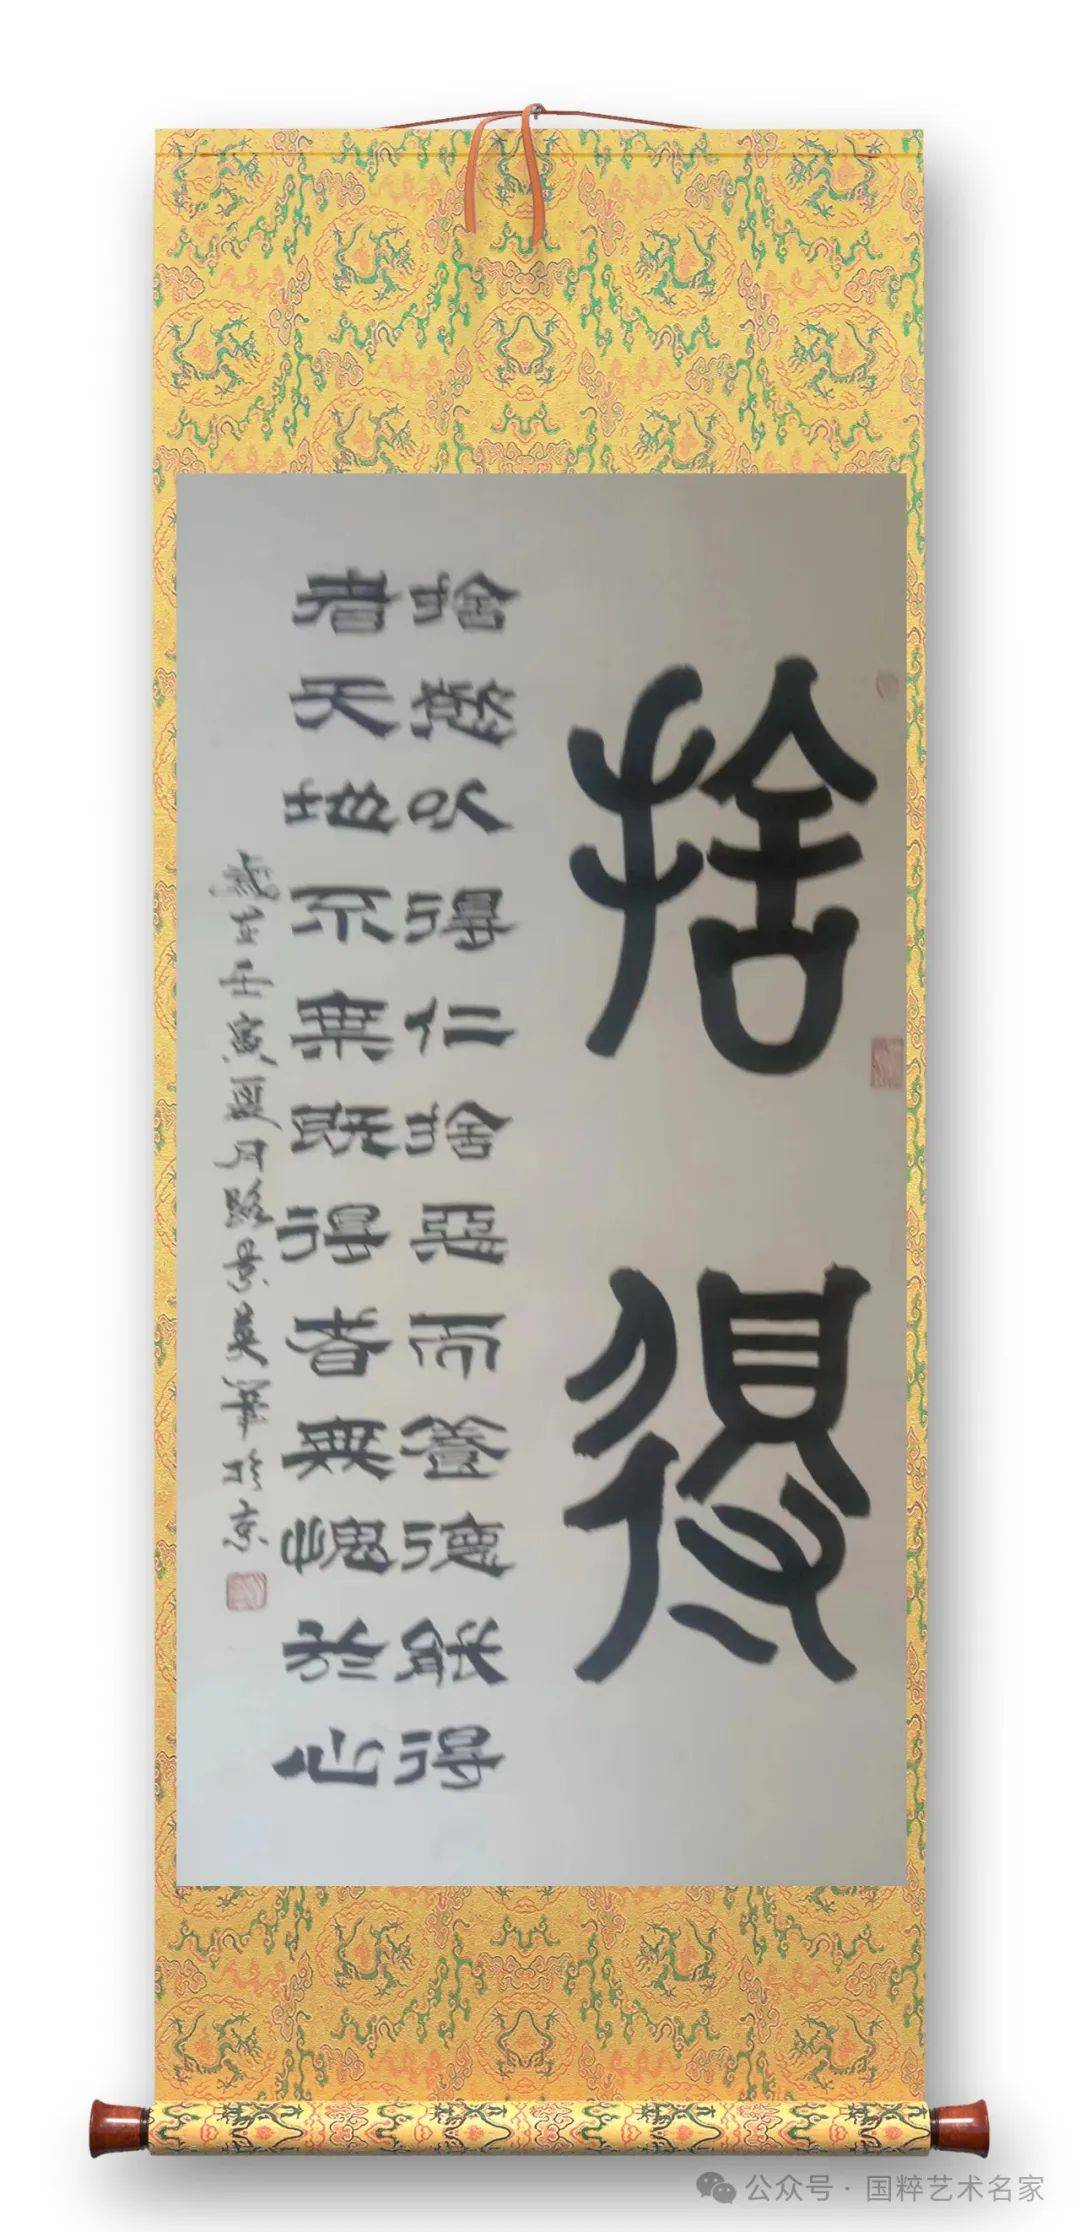 捨得
捨慾以得仁捨惡而養德能得
者天地不棄既得者無愧於心
歲在壬寅夏月路景英筆於京
公众号·国粹艺术名家